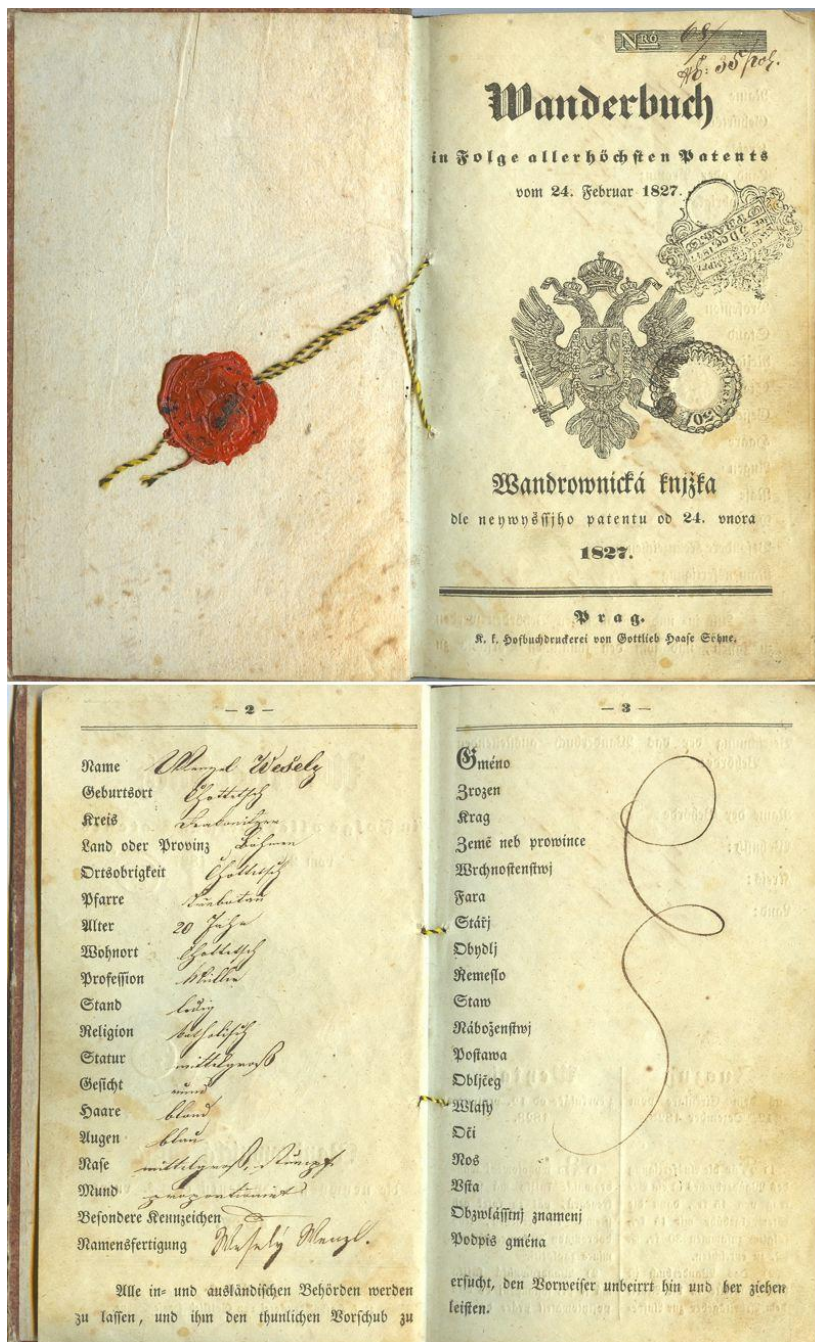 Nro 68/
Wanderbuch
in Folge allerhöchsten Patents
vom 24. Februar 1827.
Wandrownická knjžka
dle neywyšssjho patentu od 24. vnora
1827.
Prag.
K. k. Hofbuchdruckerei von Gottlieb Haase Söhne.
— 2 —
Name Wenzel Wesely
Geburtsort Chottetsch
Kreis
Land oder Provinz Böhmen
Ortsobrigkeit Chottetsch
Pfarre
Alter 20 Jahre
Wohnort Chottetsch
Profession Müller
Stand ledig
Religion katholisch
Statur mittelgroß
Gesicht rund
Haare blond
Augen blau
Nase mittelgroß, stumpf
Mund proportionirt
Besondere Kennzeichen
Namensfertigung Wesely Wenzl.
Alle in- und ausländischen Behörden werden
zu lassen, und ihm den thunlichen Vorschub zu
— 3 —
Gméno
Zrozen
Krag
Země neb prowince
Wrchnostenstwj
Fara
Stářj
Obydlj
Řemeslo
Staw
Náboženstwj
Postawa
Obljčeg
Wlasy
Oči
Nos
Vsta
Obzwlásstnj znamenj
Podpis gména
ersucht, den Vorweiser unbeirrt hin und her ziehen
leisten.